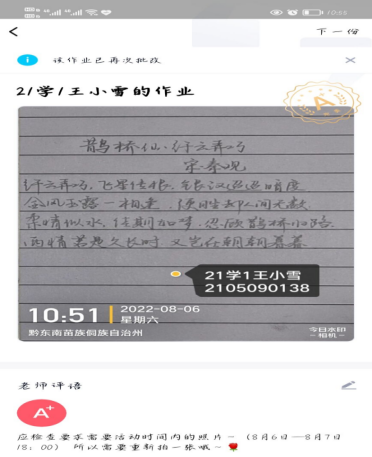 10:55
下一份
该作业已再次批改
21学1王小雪的作业
A
鹊桥仙·纤云弄巧
宋秦观
纤云弄巧,飞星传恨,银汉迢迢暗度
金风玉露一相逢,便胜却人间无数
柔情似水,佳期如梦,忍顾鹊桥归路
两情若是久长时 又岂在朝朝暮暮
21学1王小雪
2105090138
10:51
2022-08-06
星期六
黔东南苗族侗族自治州
今日水印
-相机-
老师评语
A+
应检查要求需要活动时间内的照片~(8月6日—8月7日
18:00) 所以需要重新拍一张哦~🌹